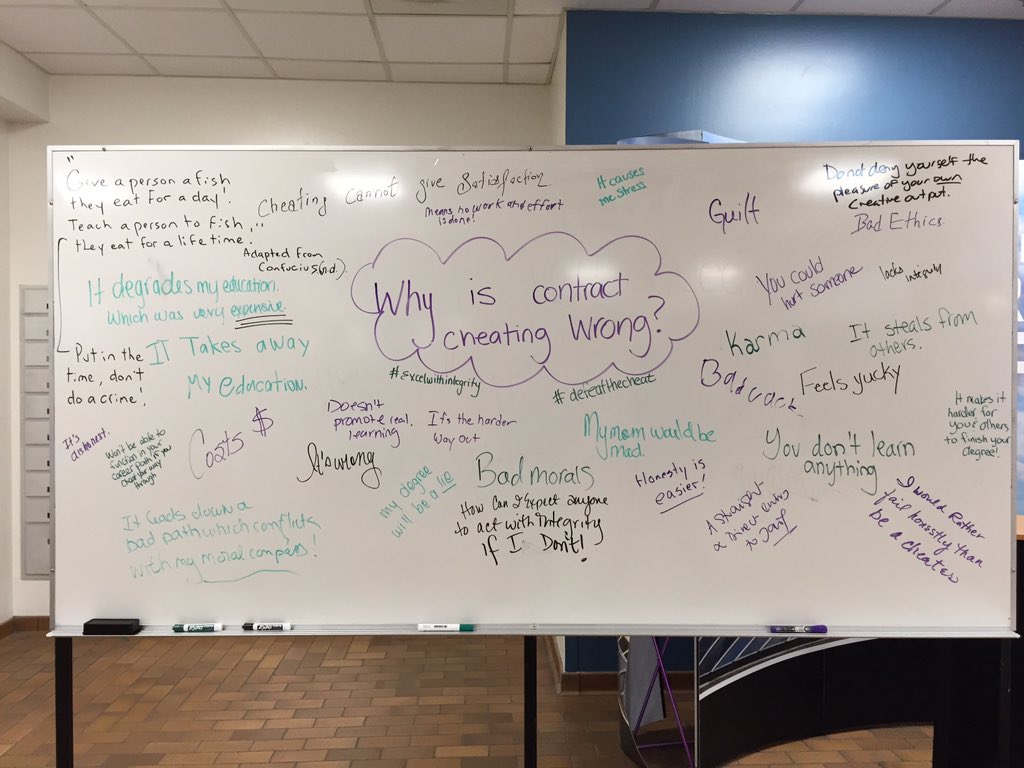 "Give a person a fish
they eat for a day!
Teach a person to fish,"
they eat for a lifetime.
Adapted from
Confucius (n.d.).
Cheating cannot give Satisfaction.
Means no work and effort
is done!
It causes
me stress
Guilt
Do not deny yourself the
pleasure of your own
creative output.
Bad Ethics.
It degrades my education.
Which was very expensive.
Why is contract
cheating Wrong?
You could
hurt someone
lacks integrity
Put in the
time, don't
do a crime!
IT Takes away
My education.
#excelwithintegrity
#defeatthecheat
Karma
It steals from
others.
Bad luck
Feels yucky
It's
dishonest.
Won't be able to
function in your
career path if you
cheat your way
through
Costs $
Doesn't
promote real
learning
It's the harder
way out
It's wrong
My mom would be
mad.
You don't learn
anything
It makes it
harder for
you & others
to finish your
degree!
my degree
will be a lie
Bad morals
How Can I Expect anyone
to act with Integrity
if I Don't!
Honesty is
easier!
I would Rather
fail honestly than
be a cheater
It leads down a
bad path which conflicts
with my moral compass!
EXPO
EXPO